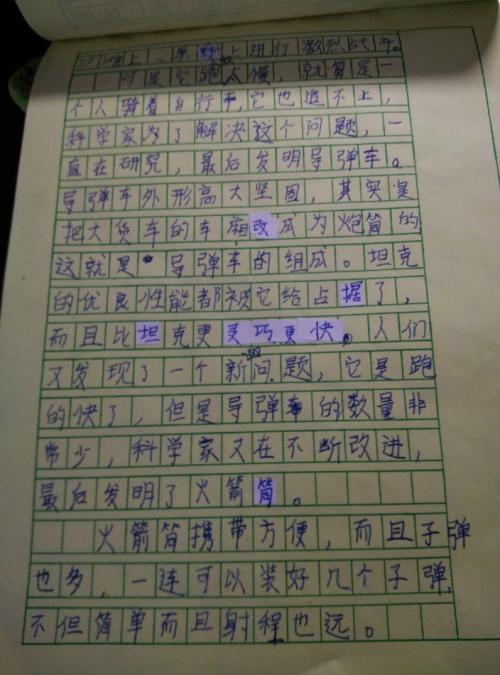 沙滩上、原野上进行激烈战斗。
可是它跑太慢，就算是一
个人骑着自行车，它也追不上，
科学家为了解决这个问题，一
直在研究，最后发明导弹车。
导弹车外形高大坚固，其实是
把大货车的车厢改成为炮筒的
这就是导弹车的组成。坦克
的优良性能都被它给占据了，
而且比坦克更灵巧更快。人们
又发现了一个新问题，它是跑
的快了，但是导弹车的数量非
常少，科学家又在不断改进，
最后发明了火箭筒。
火箭筒携带方便，而且子弹
也多，一连可以装好几个子弹，
不但简单而且射程也远。